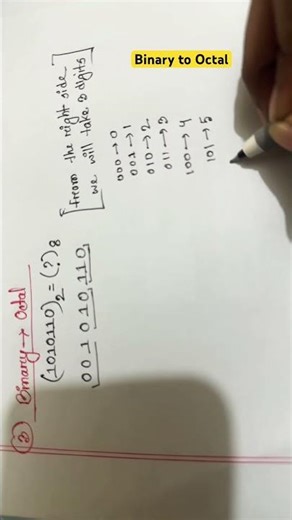 Binary to Octal
③ Binary → Octal
(1010110)₂ = (?)₈
001 010 110
[From the right side
we will take 3 digits]
000 → 0
001 → 1
010 → 2
011 → 3
100 → 4
101 → 5